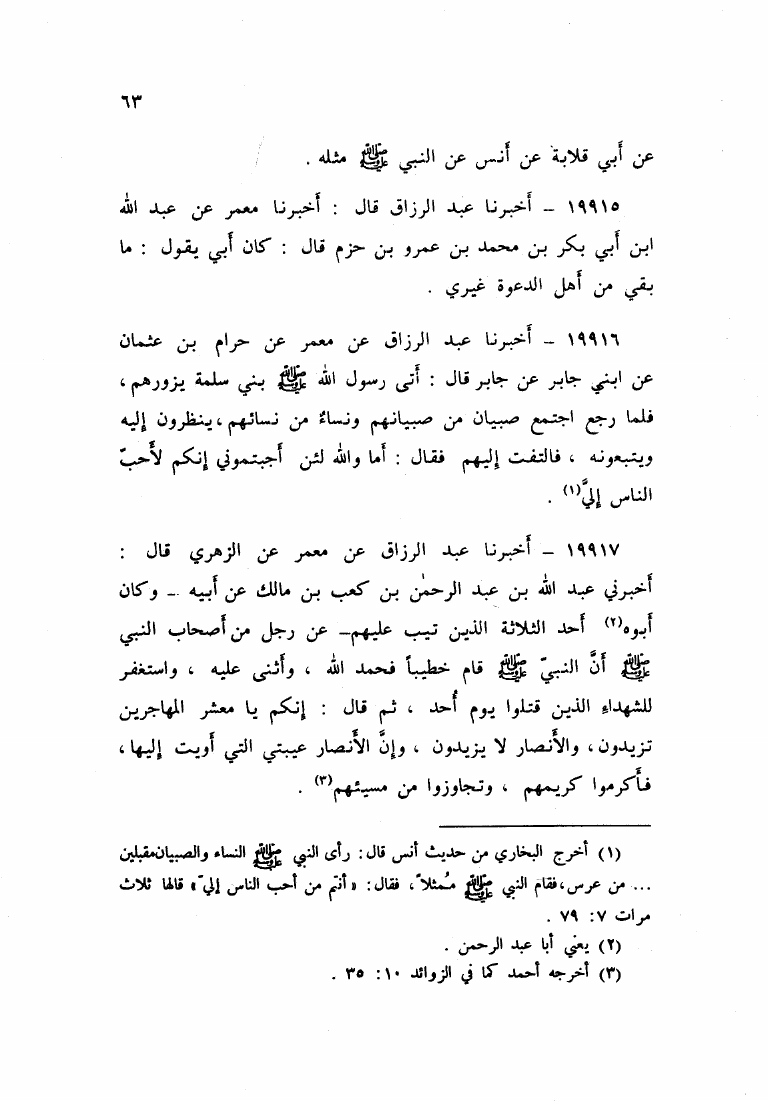 ٦٣
عن أَبي قلابة عن أَنس عن النبي ﷺ مثله .
١٩٩١٥ – أَخبرنا عبد الرزاق قال : أَخبرنا معمر عن عبد الله
ابن أَبي بكر بن محمد بن عمرو بن حزم قال : كان أَبي يقول : ما
بقي من أَهل الدعوة غيري .
١٩٩١٦ – أَخبرنا عبد الرزاق عن معمر عن حرام بن عثمان
عن ابني جابر عن جابر قال : أَتى رسول الله ﷺ بني سلمة يزورهم ،
فلما رجع اجتمع صبيان من صبيانهم ونساءٌ من نسائهم ، ينظرون إليه
ويتبعونه ، فالتفت إليهم فقال : أَما والله لئن أَجبتموني إنكم لأَحبّ
الناس إليَّ(١) .
١٩٩١٧ – أَخبرنا عبد الرزاق عن معمر عن الزهري قال :
أَخبرني عبد الله بن عبد الرحمٰن بن كعب بن مالك عن أَبيه – وكان
أَبوه(٢) أَحد الثلاثة الذين تيب عليهم– عن رجل من أَصحاب النبي
ﷺ أَنَّ النبيّ ﷺ قام خطيباً فحمد الله ، وأَثنى عليه ، واستغفر
للشهداءِ الذين قتلوا يوم أُحد ، ثم قال : إنكم يا معشر المهاجرين
تزيدون ، والأَنصار لا يزيدون ، وإنَّ الأَنصار عيبتي التي أَويت إليها ،
فأَكرموا كريمهم ، وتجاوزوا من مسيئهم(٣) .
(١) أخرج البخاري من حديث أنس قال : رأى النبي ﷺ النساء والصبيان مقبلين
... من عرس، فقام النبي ﷺ مُمثلاً ، فقال : « أنتم من أحب الناس إليّ » قالها ثلاث
مرات ٧: ٧٩ .
(٢) يعني أبا عبد الرحمن .
(٣) أخرجه أحمد كما في الزوائد ١٠: ٣٥ .